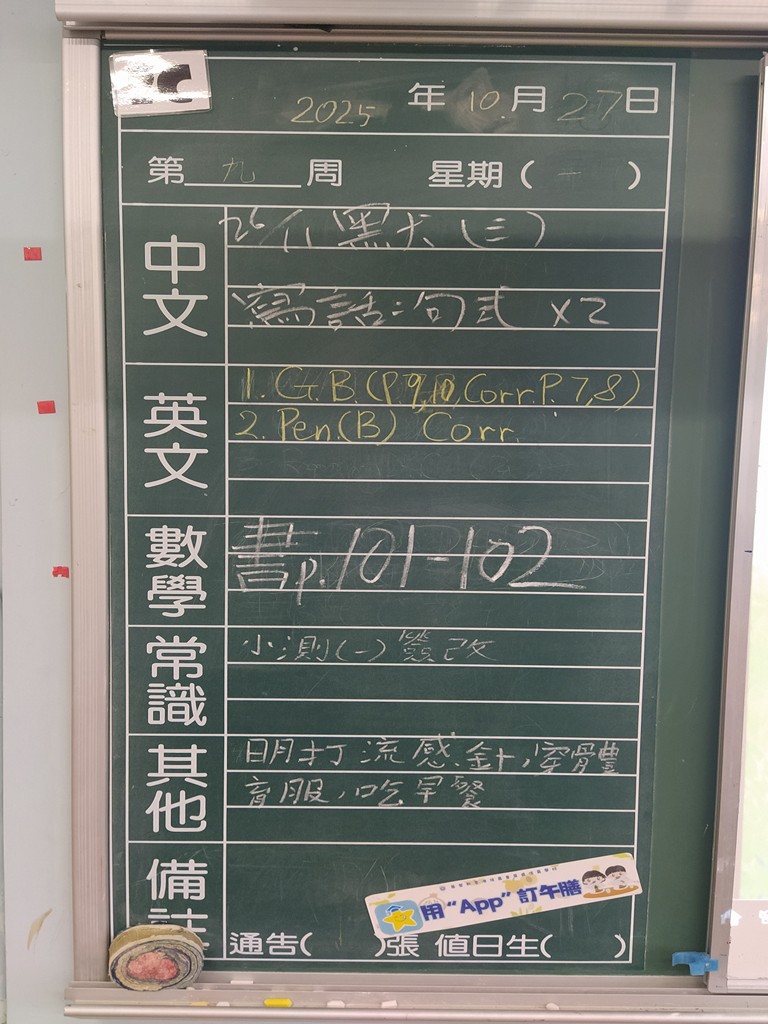 2025 年 10 月 27 日
第 九 周 星期( 一 )
中文
黑犬(三)
寫話:句式 x2
英文
1. G.B. (P 9,10, Corr. P. 7,8)
2. Pen.(B) Corr.
數學
書p.101-102
常識
小測(一)簽改
其他
明打流感針,穿體
育服,吃早餐
備註
用“App”訂午膳
通告( )張 值日生( )